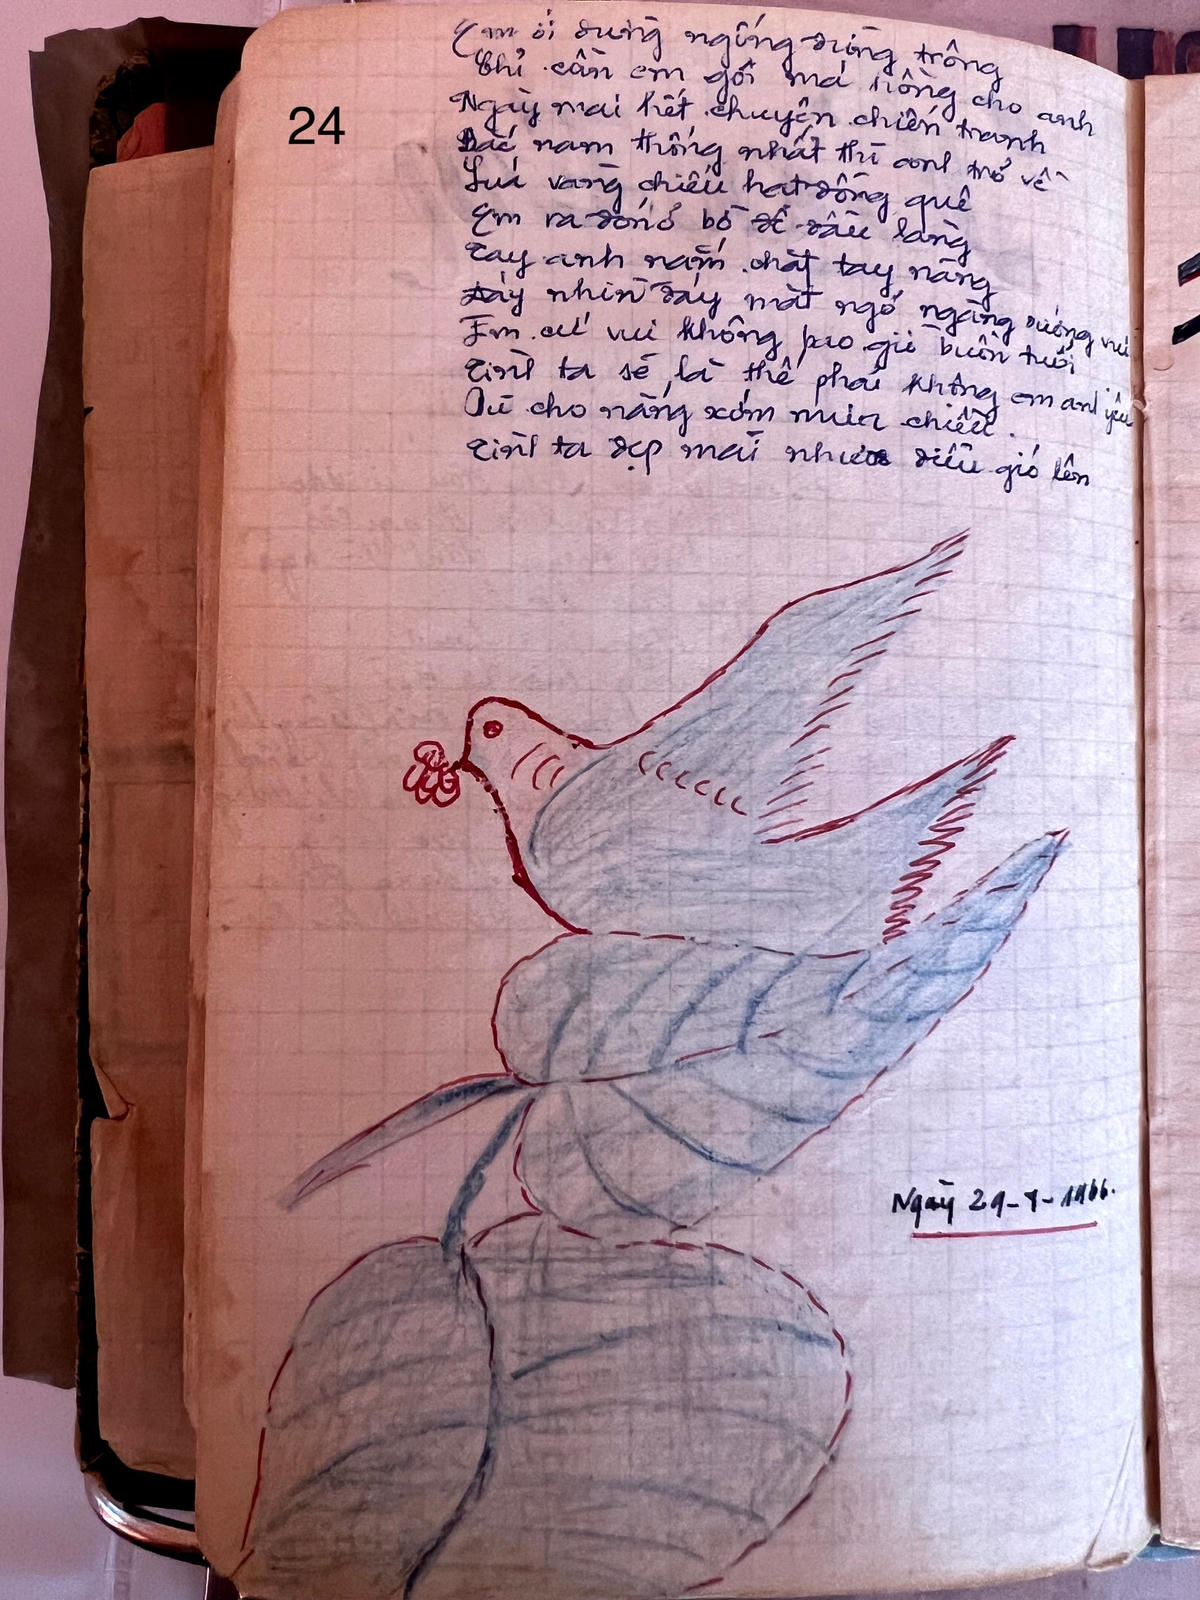 Em ơi đừng ngóng đừng trông
Chỉ cần em gối má hồng cho anh
24
Ngày mai hết chuyện chiến tranh
Bắc nam thống nhất thì anh trở về
Lúa vàng chiếu hạt đồng quê
Em ra đón ở bờ đê đầu làng
Tay anh nắm chặt tay nàng
đáy nhìn đáy mắt ngỡ ngàng sướng vui
Em cứ vui không bao giờ buồn tưổi
Tình ta sẽ là thế phải không em anh yêu
Dù cho nắng sớm mưa chiều.
Tình ta đẹp mãi như diều gió lên
Ngày 29-7-1966.